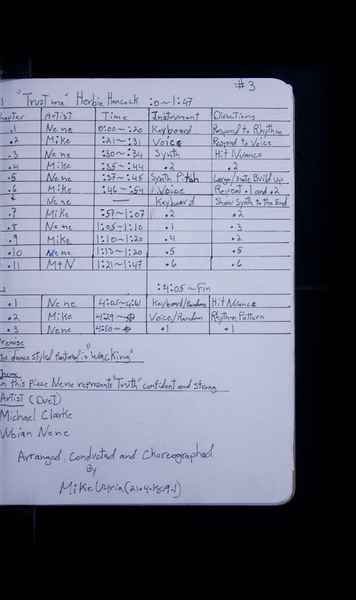 #3
"Trust me" Herbie Hancock :0~1:47
hapter Artist Time Instrument Directions
.1 Nene 0:00~:20 Keyboard Respond to Rhythm
.2 Mike :21~:31 Voice Respond to Voice
.3 Nene :30~:34 Synth Hit Nuance
.4 Mike :35~:44 .2 .2
.5 Nene :37~:45 Synth Pitch Build up
.6 Mike :46~:54 Voice Repeat .1 and .2
Nene — Keyboard Show Synth to the End
.7 Mike :57~1:07 .2 .2
.8 Nene 1:05~1:10 .1 .3
.9 Mike 1:10~1:20 .4 .2
.10 Nene 1:13~1:20 .5 .5
.11 M+N 1:21~1:47 .6 .6
2 :4:05~Fin
.1 Nene 4:05~4:41 Keyboard/Random Hit Nuance
.2 Mike 4:29~ Voice/Random Rhythm Pattern
.3 Nene 4:50~ .1 .1
Premise
The dance styled featured is "Wacking"
Theme
In this piece Nene represents "Truth" confident and strong
Artist (Duet)
Michael Clarke
Vvbian Nene
Arranged, Conducted and Choreographed
By
Mike Uyria (21.4.18.9.1)